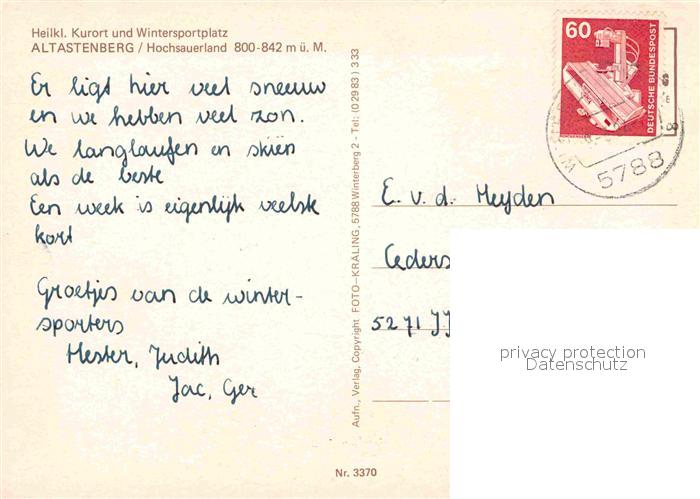 Heilkl. Kurort und Wintersportplatz
ALTASTENBERG / Hochsauerland 800-842 m ü. M.
Er ligt hier veel sneeuw
en we hebben veel zon.
We langlaufen en skiën
als de beste
Een week is eigenlijk veelste
kort
Groetjes van de winter-
sporters
Hester, Judith
Jac, Ger
Aufn., Verlag, Copyright FOTO-KRÄLING, 5788 Winterberg 2 - Tel: (0 29 83) 3 33
Nr. 3370
60
DEUTSCHE BUNDESPOST
5788
E. v. d. Heyden
Ceders
5271 JJ
privacy protection
Datenschutz